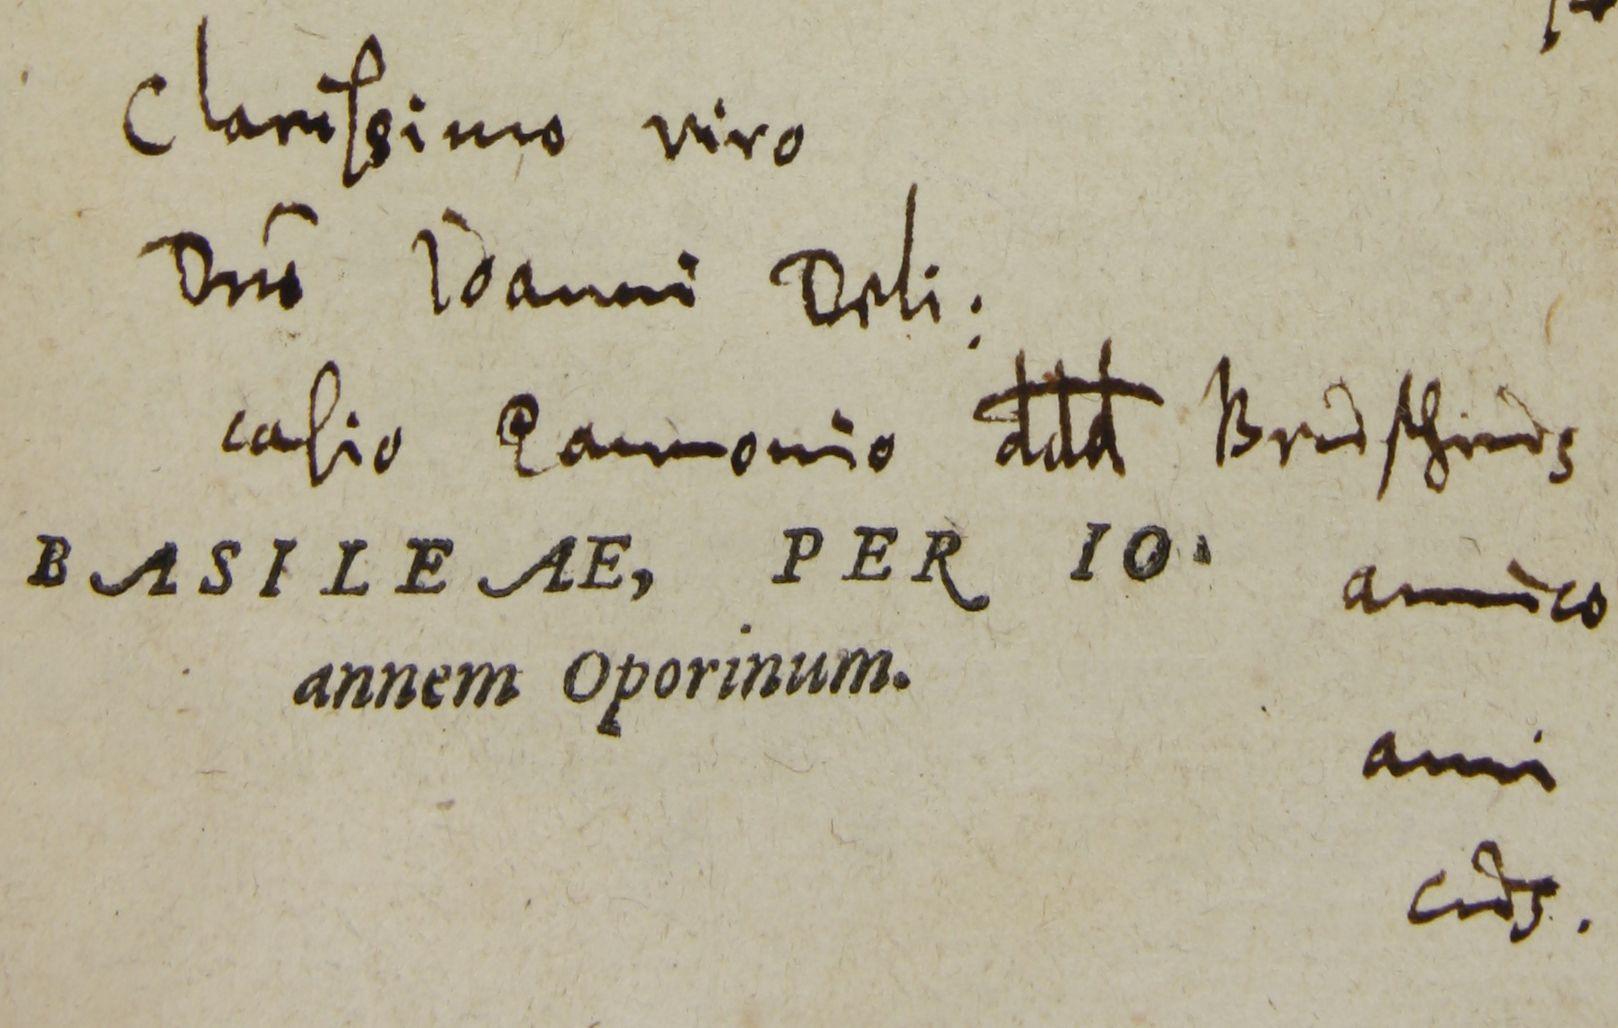 Clarissimo viro
Dno Ioanni Deli:
casio Pannonio ddd Bruschius
BASILEAE, PER IO.
annem Oporinum.
amico
ami
cus.